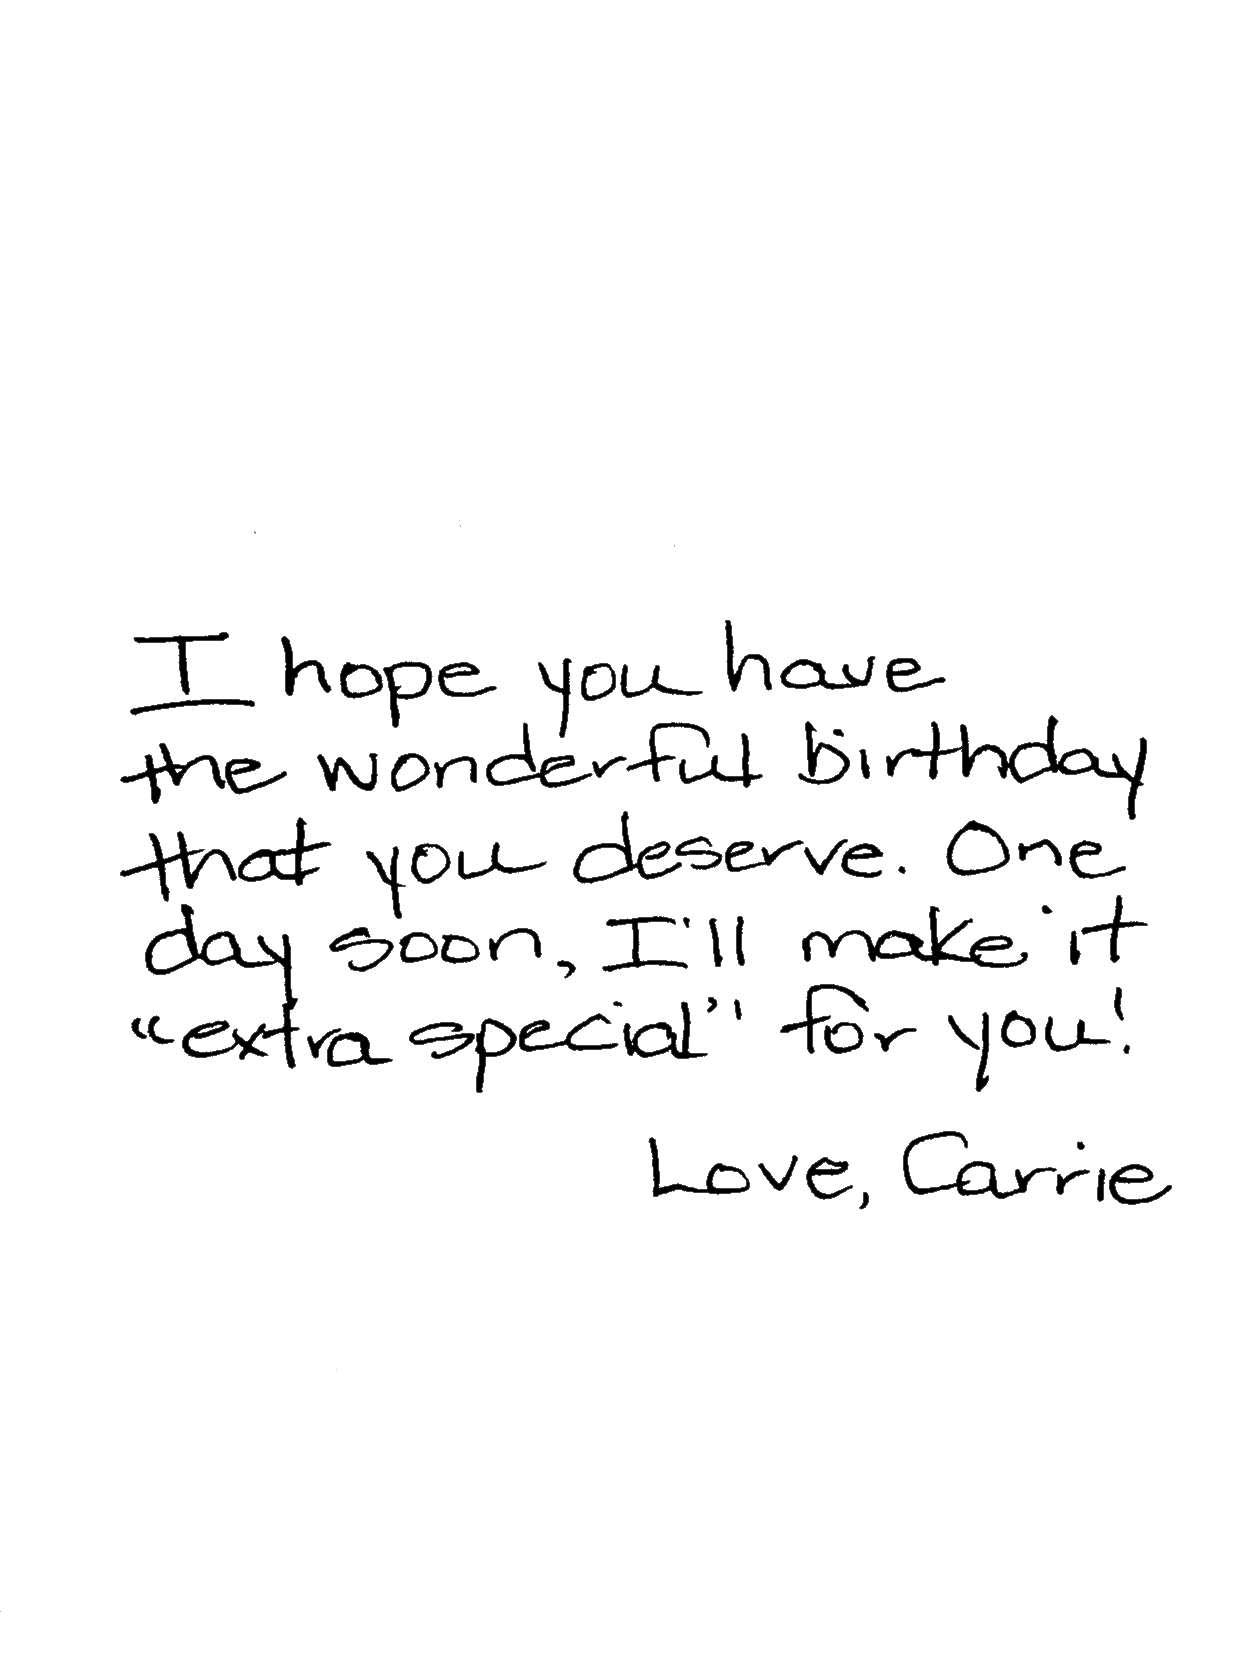 I hope you have
the wonderful birthday
that you deserve. One
day soon, I'll make it
“extra special” for you!
Love, Carrie